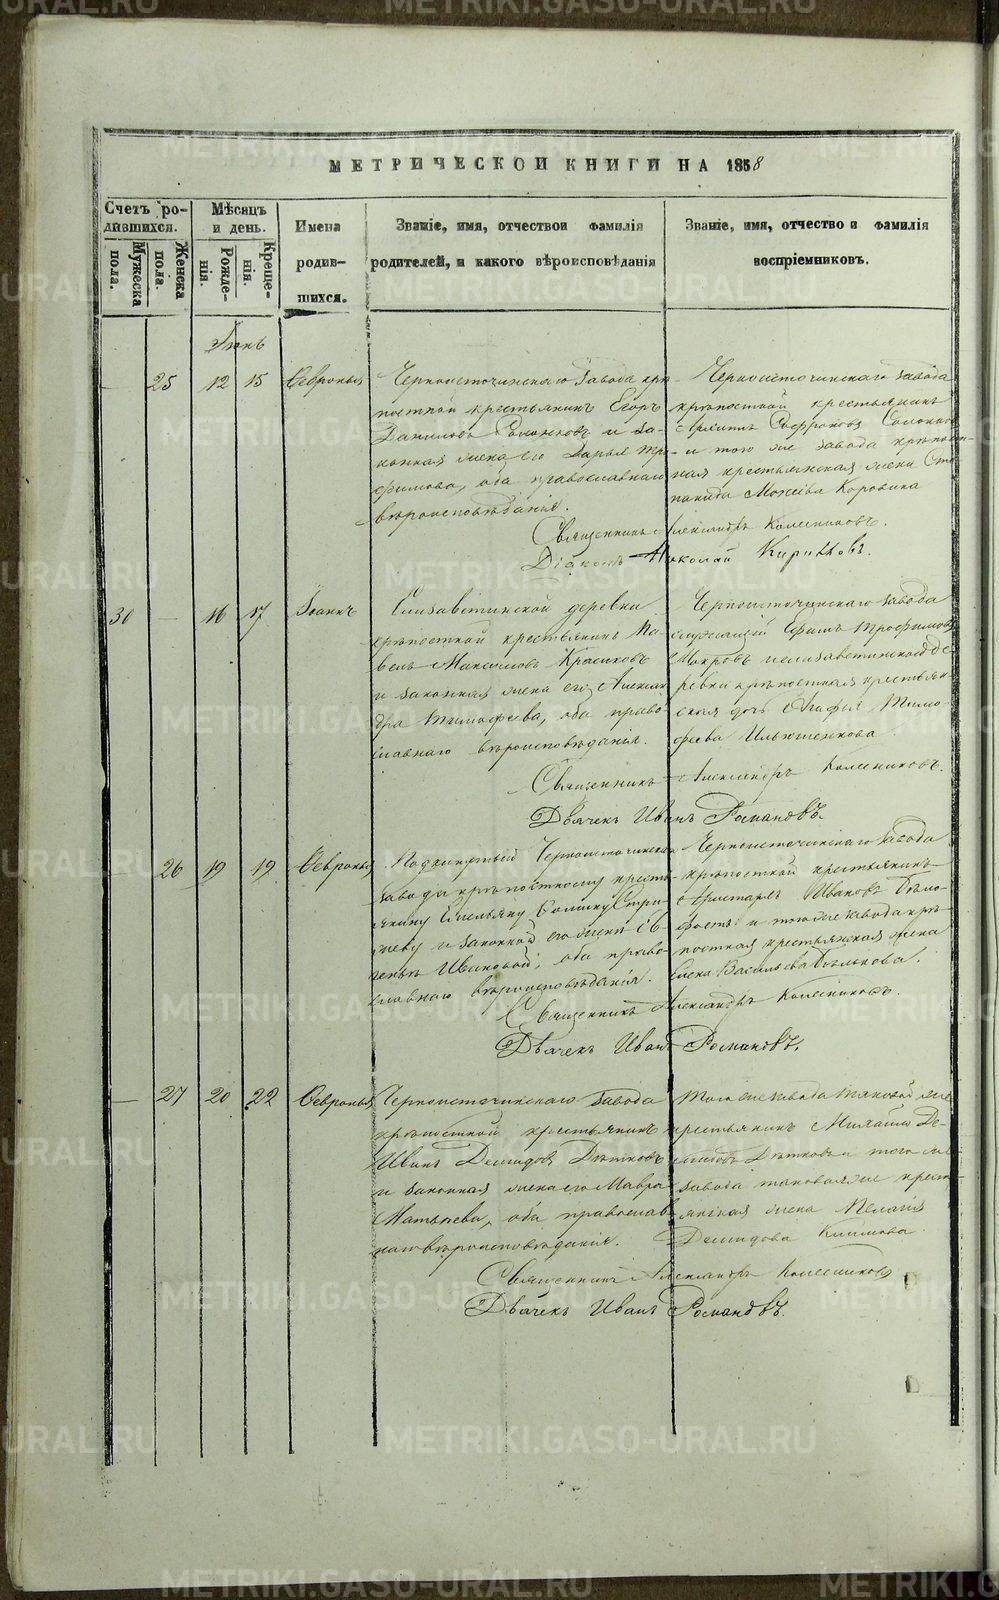 МЕТРИЧЕСКОИ КНИГИ НА 1858
Счетъ ро-
дившихся.
Мужеска
пола.
Женска
пола.
Мѣсяцъ
и день.
Рожде-
нія.
Креще-
нія.
Имена
родив-
шихся.
Званіе, имя, отчествои фамилія
родителей, и какого вѣроисповѣданія
Званіе, имя, отчество и фамилія
воспріемниковъ.
Іюнь
— 25 12 15 Февронья
Черноисточинскаго завода крѣ-
постной крестьянинъ Егоръ
Даниловъ и за-
конная жена его Дарья Тро-
фимова, оба православнаго
вѣроисповѣданія.
Черноисточинскаго завода
крѣпостной крестьянинъ
и того же завода крѣпост-
ная крестьянская жена Сте-
панида Моисѣева Коровина
Священникъ Александръ Колесниковъ.
Діаконъ Николай Кирилловъ.
30 — 16 17 Іоаннъ
Елизаветинской деревни
крѣпостной крестьянинъ Па-
велъ Максимовъ Красиковъ
и законная жена его Алексан-
дра Тимофеева, оба право-
славнаго вѣроисповѣданія.
Черноисточинскаго завода
служащій Ефимъ Трофимовъ
Шокровъ и елизаветинской де-
ревни крѣпостная крестьян-
ская дочь Агафья Тимо-
феева Ильюшенкова
Священникъ Александръ Колесниковъ.
Дьячекъ Иванъ Романовъ.
— 26 19 19 Февронья
Подкинутый Черноисточинскаго
завода крѣпостному кресть-
янину Емельяну Стри-
жеву и законной его женѣ Ев-
Ивановой, оба право-
славнаго вѣроисповѣданія.
Черноисточинскаго завода
крѣпостной крестьянинъ
Аристархъ Ивановъ
и того же завода крѣ-
постная крестьянская жена
Елена Васильева Бѣлькова.
Священникъ Александръ Колесниковъ.
Дьячекъ Иванъ Романовъ.
— 27 20 22 Февронья
Черноисточинскаго завода
крѣпостной крестьянинъ
Иванъ Демидовъ Дѣтковъ
и законная жена его Мавра
Матвѣева, оба православ-
наго вѣроисповѣданія.
Того же завода таковой же
крестьянинъ Михаилъ Де-
мидовъ Дѣтковъ и того же
завода таковая же кресть-
янская жена Пелагія
Демидова Климова
Священникъ Александръ Колесниковъ
Дьячекъ Иванъ Романовъ.